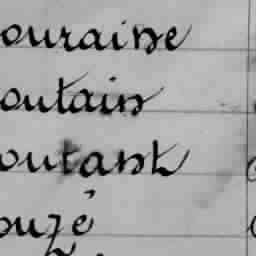 ouraine
outain
outant
ouzé